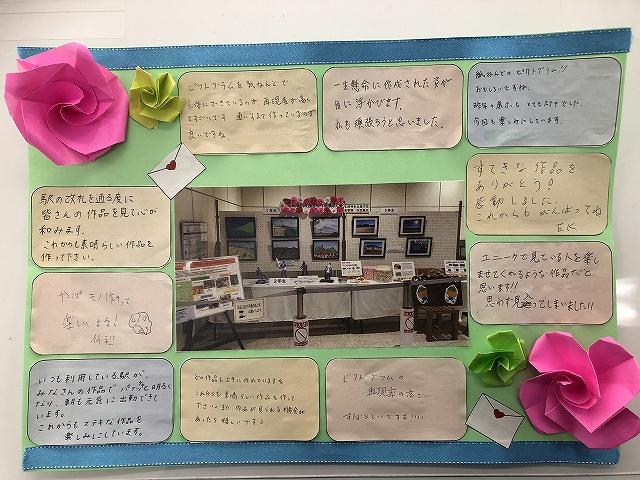 ピクトグラムを紙ねんどで
立体にできているのが再現度が高い
ですごいです 重いイスまで作っているのが
良いですね。
一生懸命に作成された姿が
目に浮かびます。
私も頑張ろうと思いました。
紙ねんどのピクトグラム!!
おもしろいですね。
昨年の展示もとてもステキでした。
今回も楽しみにしています。
すてきな作品を
ありがとう!
感動しました。
これからもがんばってね
E.K
駅の改札を通る度に
皆さんの作品を見て心が
和みます。
これからも素晴らしい作品を
作って下さい。
ユニークで見ている人を楽し
ませてくれるような作品だと
思います!!
思わず見入ってしまいました!!
やっぱモノ作って
楽しいよな!
いつも利用している駅が、
みなさんの作品でパァっと明るく
なり、朝も元気に出勤できて
います。
これからもステキな作品を
楽しみにしています。
どの作品も上手に作れていますね
これからも素晴らしい作品を作って
下さい。また作品が見られる機会が
あったら嬉しいです
ピクトグラムの
再現率の高さ…
すばらしいです!!!!
1年生
2年生
3年生